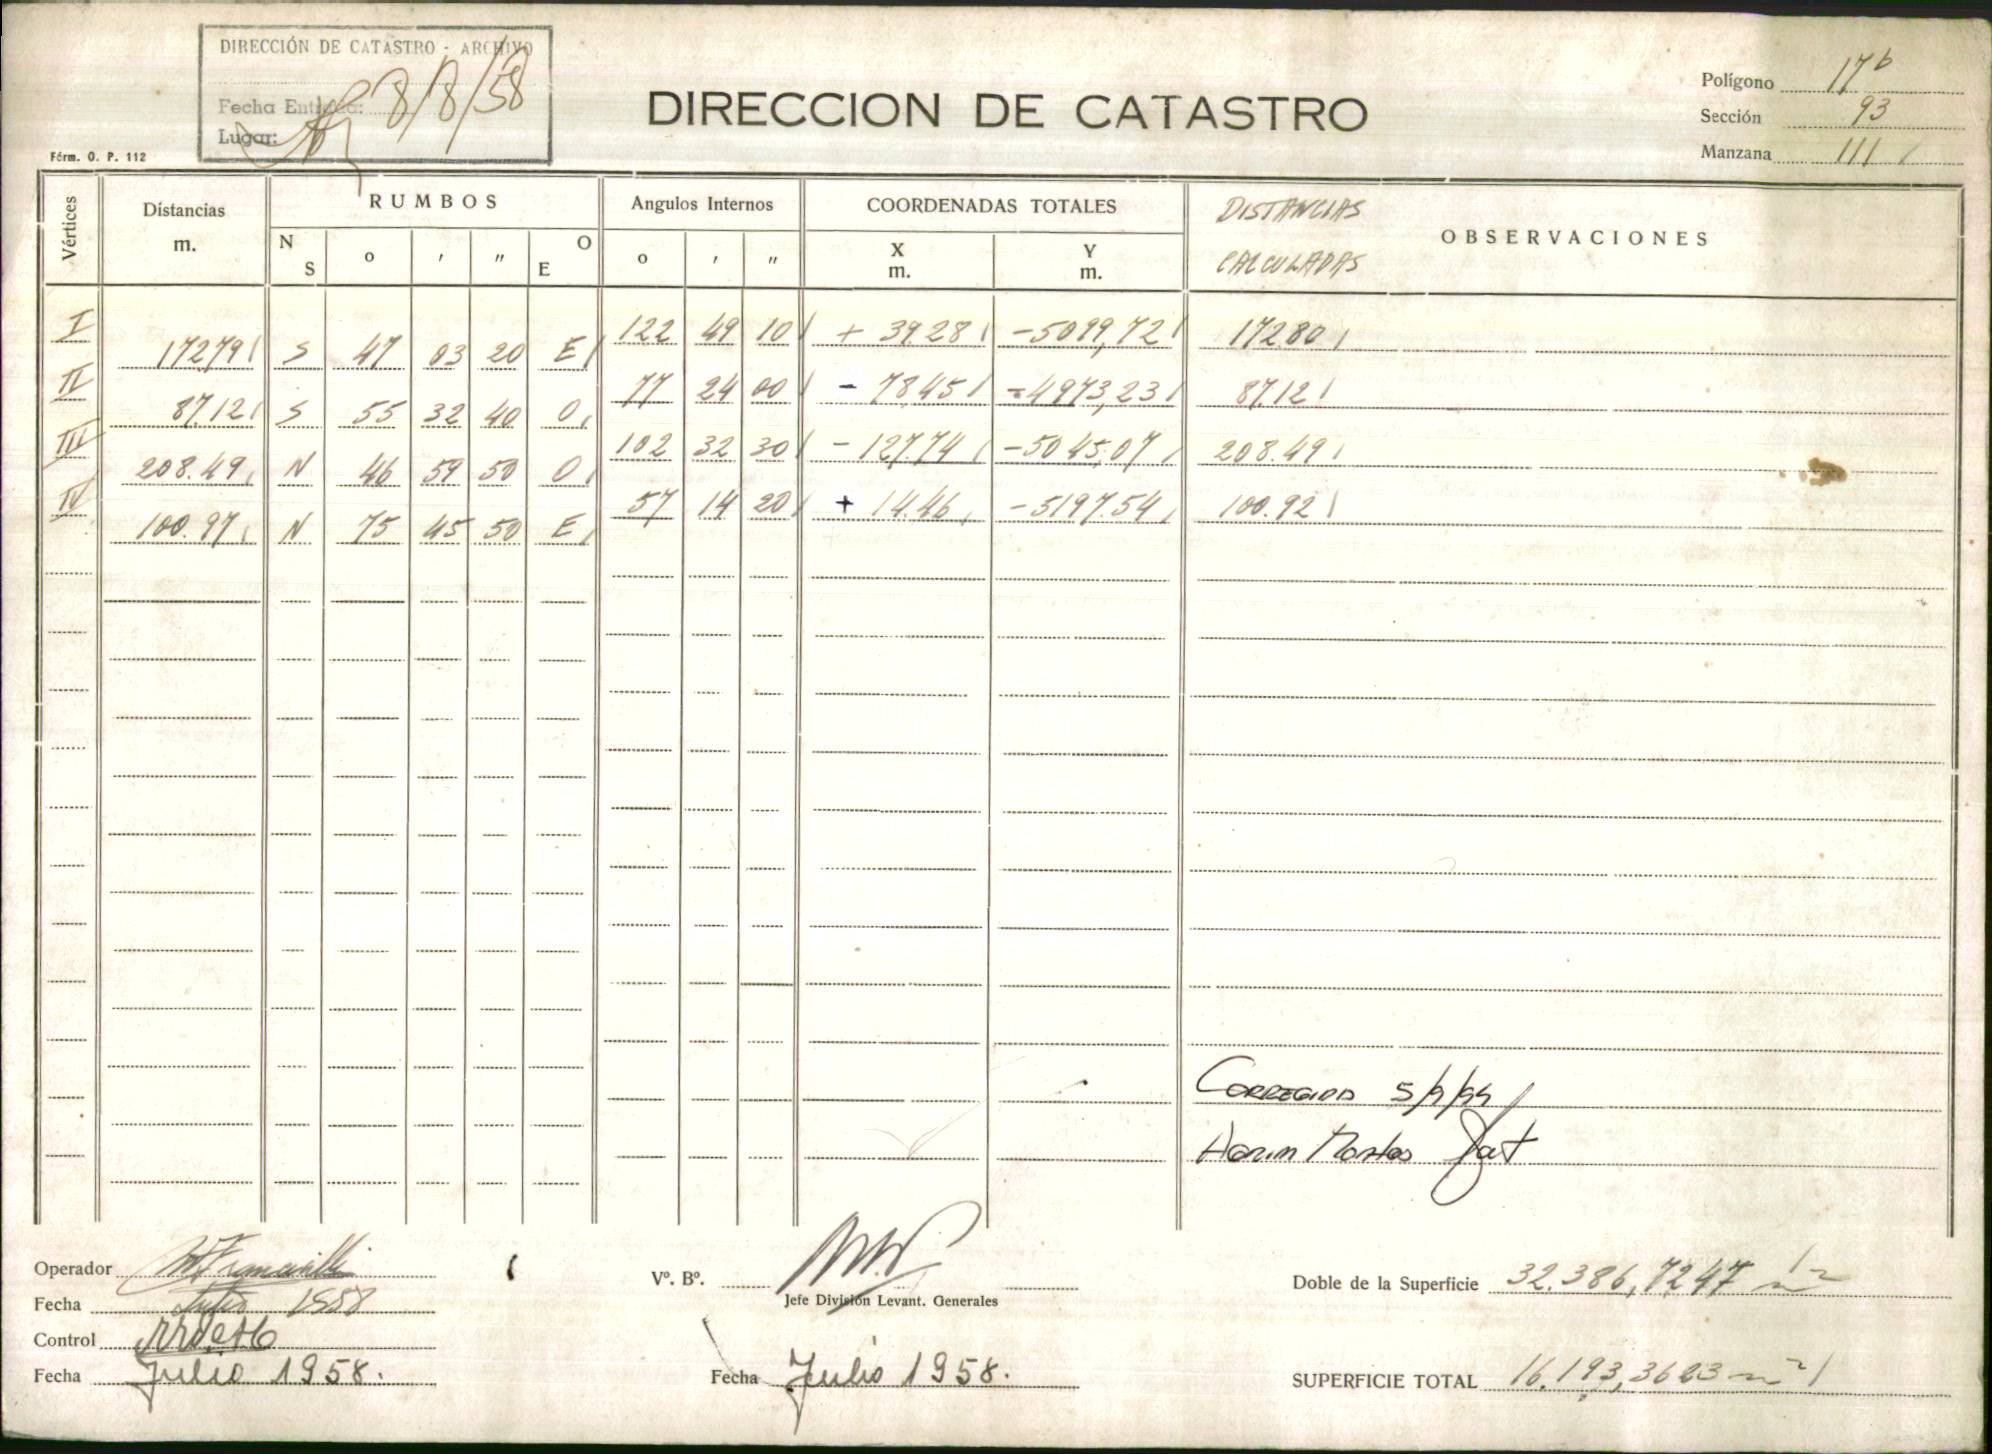 DIRECCIÓN DE CATASTRO - ARCHIVO
Fecha Entrada: 8/8/58
Lugar:
Fórm. O. P. 112
DIRECCION DE CATASTRO
Polígono 17b
Sección 93
Manzana 111
Vértices Distancias m. RUMBOS N S o ′ ″ O E Angulos Internos o ′ ″ COORDENADAS TOTALES X m. Y m. DISTANCIAS CALCULADAS OBSERVACIONES
I 122 49 10 + 39.28 -5099,72 172.80
172.79 S 47 03 20 E
II 77 24 00 - 78.45 -4973,23 87.12
87.12 S 55 32 40 O
III 102 32 30 - 127.74 -5045,07 208.49
208.49 N 46 59 50 O
IV 57 14 20 + 14.46 -5197.54 100.92
100.97 N 75 45 50 E
CORREGIDO
Operador
Fecha Julio 1958
Control
Fecha Julio 1958.
Vº. Bº.
Jefe División Levant. Generales
Fecha Julio 1958.
Doble de la Superficie 32.386,7247 m2
SUPERFICIE TOTAL 16.193,3623 m2